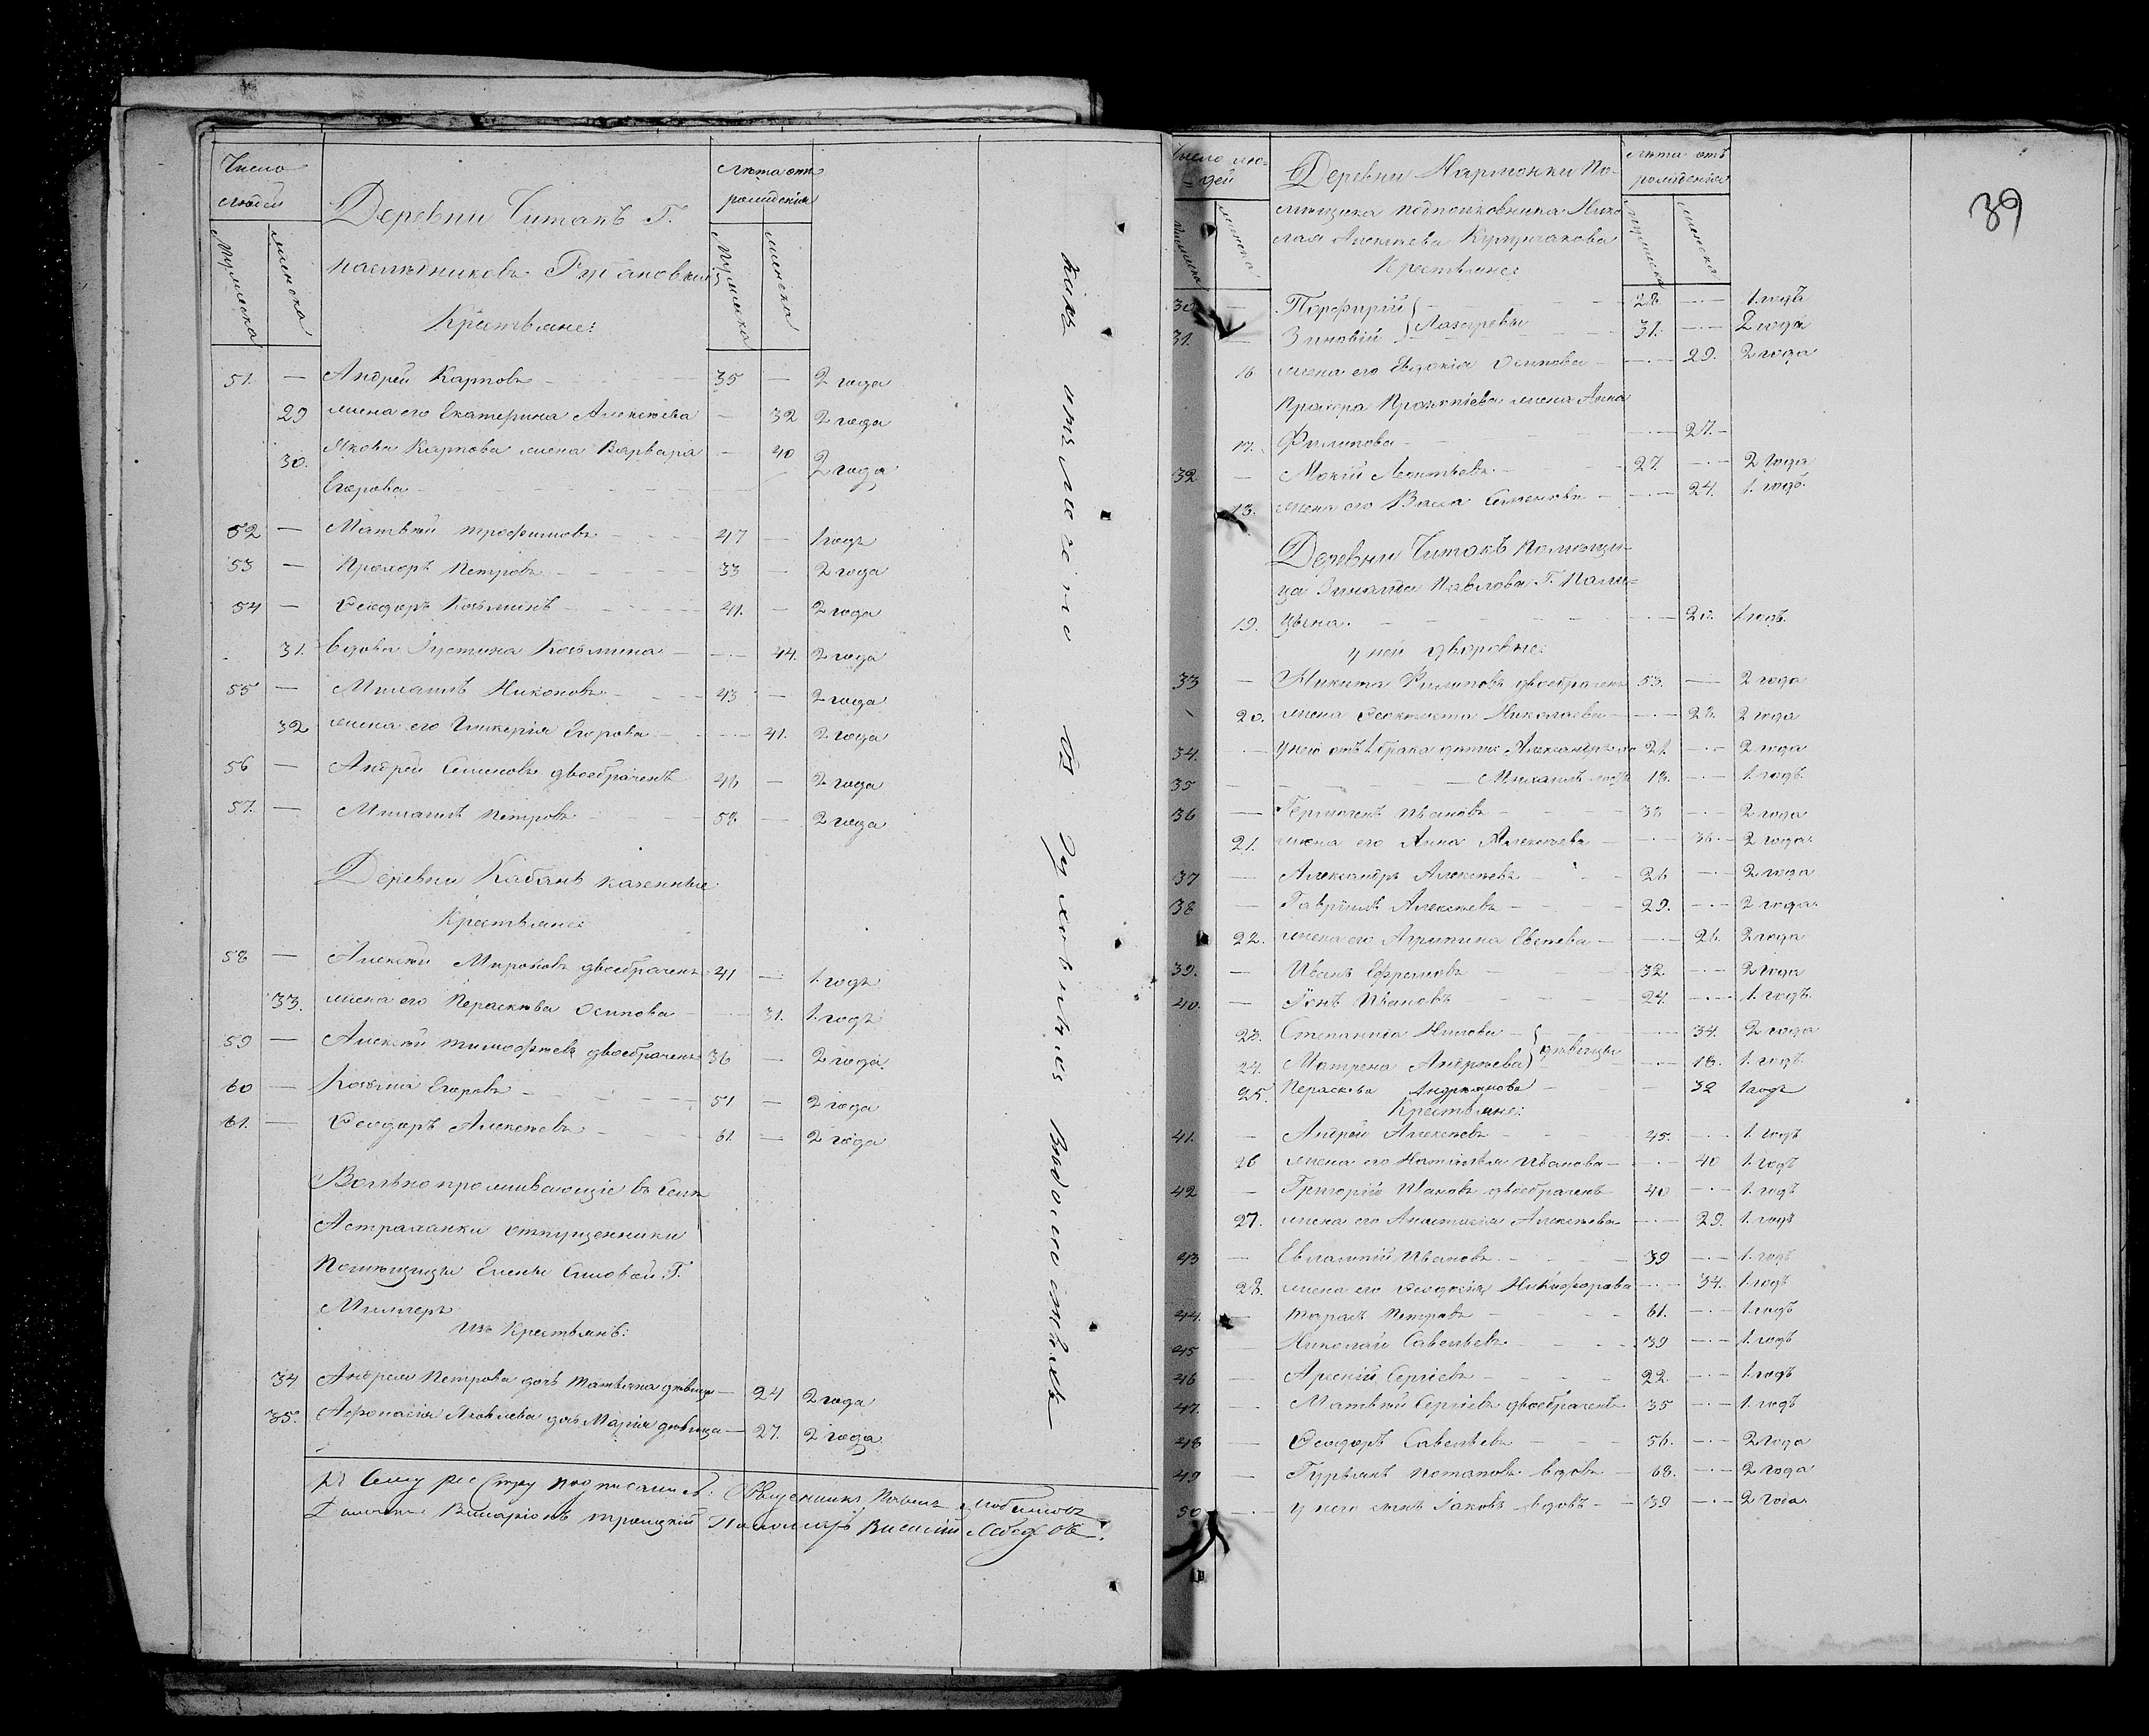 Число
людей
Лѣта отъ
рожденія
Мужеска
женска
Мужеска
женска
Деревни Читакъ Г.
наслѣдниковъ
Крестьяне:
51. — Андрей Карповъ 35 — 2 года
29 жена его Екатерина Алексѣева — 32 2 года
30. Якова Карпова жена Варвара — 40 2 года
Егорова
52 — Матвѣй Трофимовъ 47 — 1 годъ
53 — Прохоръ Петровъ 33 — 2 года
54 — Ѳеодоръ Козьминъ 41. — 2 года
31. вдова Устина Козьмина — 44. 2 года
55 — Михаилъ Никоновъ 43 — 2 года
32 жена его Гликерія Егорова — 41. 2 года
56 — Андрей Семеновъ двоебраченъ 46 — 2 года
57. — Михаилъ Петровъ 58 — 2 года
Деревни Кабанъ казенные
Крестьяне:
58 — Алексѣй Мироновъ двоебраченъ 41 — 1. годъ
33. жена его Параскева Осипова — 31. 1. годъ
59 — Алексѣй Тимофѣевъ двоебраченъ 36 — 2 года
60 — Козьма Егоровъ 51 — 2 года
61. — Ѳеодоръ Алексѣевъ 61. — 2 года
Вольнопроживающіе въ селѣ
Астраханки отпущенники
Помѣщицы Елены Г.
Миллеръ
изъ Крестьянъ:
34 Андрея Петрова дочь Татьяна дѣвица — 24 2 года
35. Аѳонасія Яковлева дочь Марія дѣвица — 27. 2 года
Къ Сему реестру подписались: Священникъ
Дьяконъ Иларіонъ Троицкій Пономарь Василій
въ духовныхъ вѣдомостяхъ
39
Число лю-
дей
Лѣта отъ
рожденія
женска
мужеска
женска
Деревни Нармонки По-
мѣщика подполковника Нико
лая Алексѣева
Крестьяне:
30 — Порфирій } 28 — 1. годъ
31. — Зиновій } Лазаревы 31. — 2 года
16. жена его Евдокія Осипова — 29. 2 года
Прохора Прокопіева жена Анна
17. Филипова — 27. —
32 — Мокій Леонтьевъ 27 — 2 года
жена его Васса Семенова — 24. 1. годъ
Деревни Читакъ помѣщи-
ца Зинаида Павлова Г.
19. 1 годъ.
у ней дворовые:
33 — Никита Филиповъ двоебраченъ 53. — 2 года
20. жена Ѳеоктиста Николаева — 28. 2 года
34. — у нею отъ 1 брака дѣти: Александръ 21. — 2 года
35 — Михаилъ 18. — 1. годъ
36 — Гермогенъ Ивановъ 38 — 2 года
21. жена его Анна Алексѣева — 36. 2 года
37 — Александръ Алексѣевъ 26 — 2 года
38 — Гавріилъ Алексѣевъ 29. — 2 года
22. жена его Агрипина Евсеева — 26. 2 года
39. — Иванъ Ефремовъ 32. — 2 года
40. — Іонъ Ивановъ 24. — 1. годъ
23. Степанида Нилова } — 34. 2 года
24. Матрена Андреева } дѣвицы — 18. 1. годъ
25. Параскева Андреянова — 32 1 годъ
Крестьяне:
41. — Андрей Алексѣевъ 45. — 1. годъ
26 жена его Наталья Иванова — 40 1. годъ
42 — Григорій Ивановъ двоебраченъ 40 — 1. годъ
27. жена его Анастасія Алексѣева — 29. 1. годъ
43 — Евлампій Ивановъ 39 — 1. годъ
28. жена его Ѳеодосія Никифорова — 34. 1. годъ
44. — Тарасъ Петровъ 61. — 1. годъ
45 — Николай Савельевъ 39 — 1. годъ
46 — Арсеній Сергѣевъ 22 — 1. годъ
47. — Матвѣй Сергѣевъ двоебраченъ 35 — 1. годъ
48 — Ѳеодоръ Савельевъ 56. — 2 года
49 — Гурьянъ Потаповъ вдовъ 68. — 2 года
50 — у него сынъ Іаковъ вдовъ 39 — 2 года